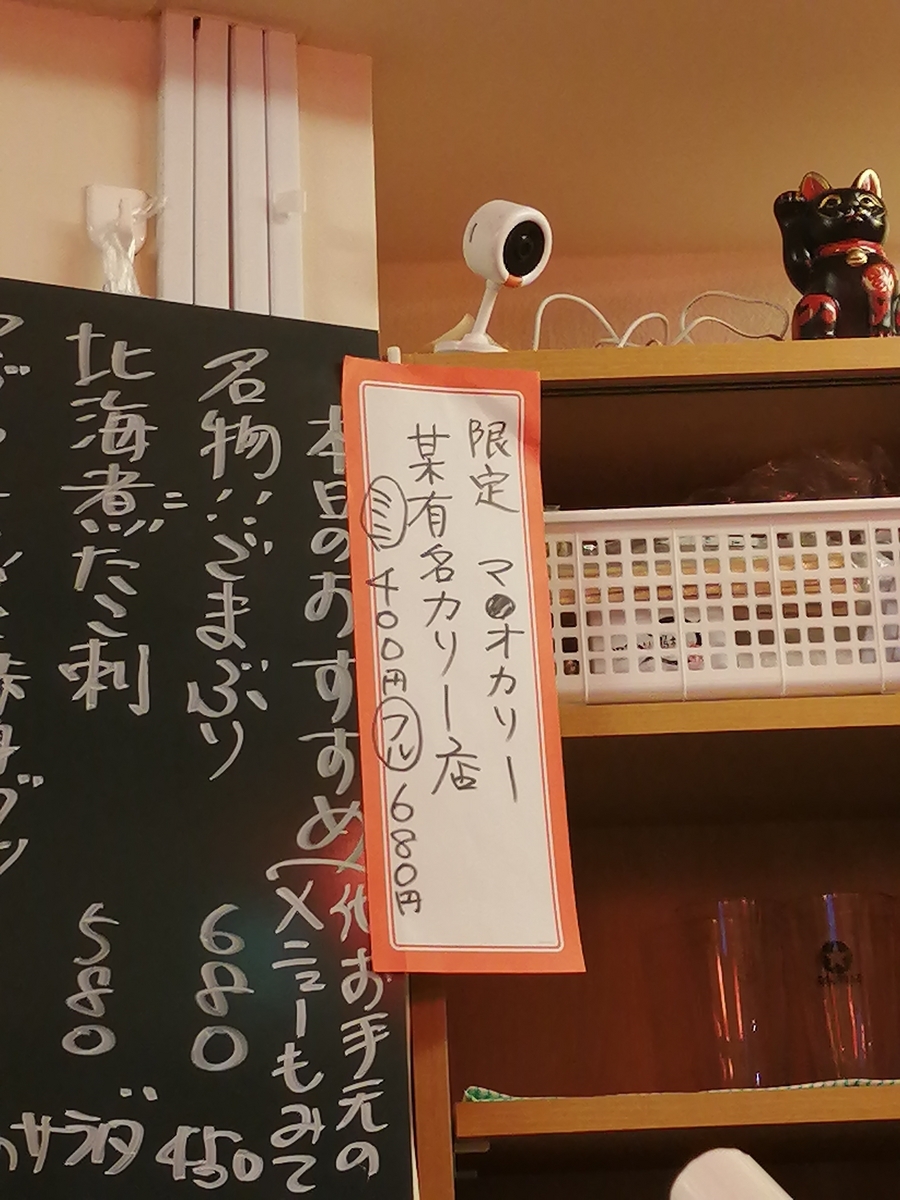 限定 マ●オカリー
某有名カリー店
ミニ 400円 フル 680円
本日のおすすめ
お手元の
メニューもみて
名物!!ざまぶり 680
北海煮だこ刺 580
サラダ 450